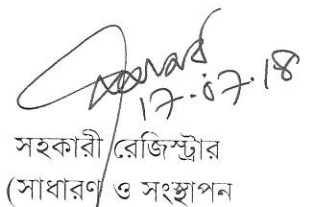 17.07.18
সহকারী রেজিস্ট্রার
(সাধারণ ও সংস্থাপন